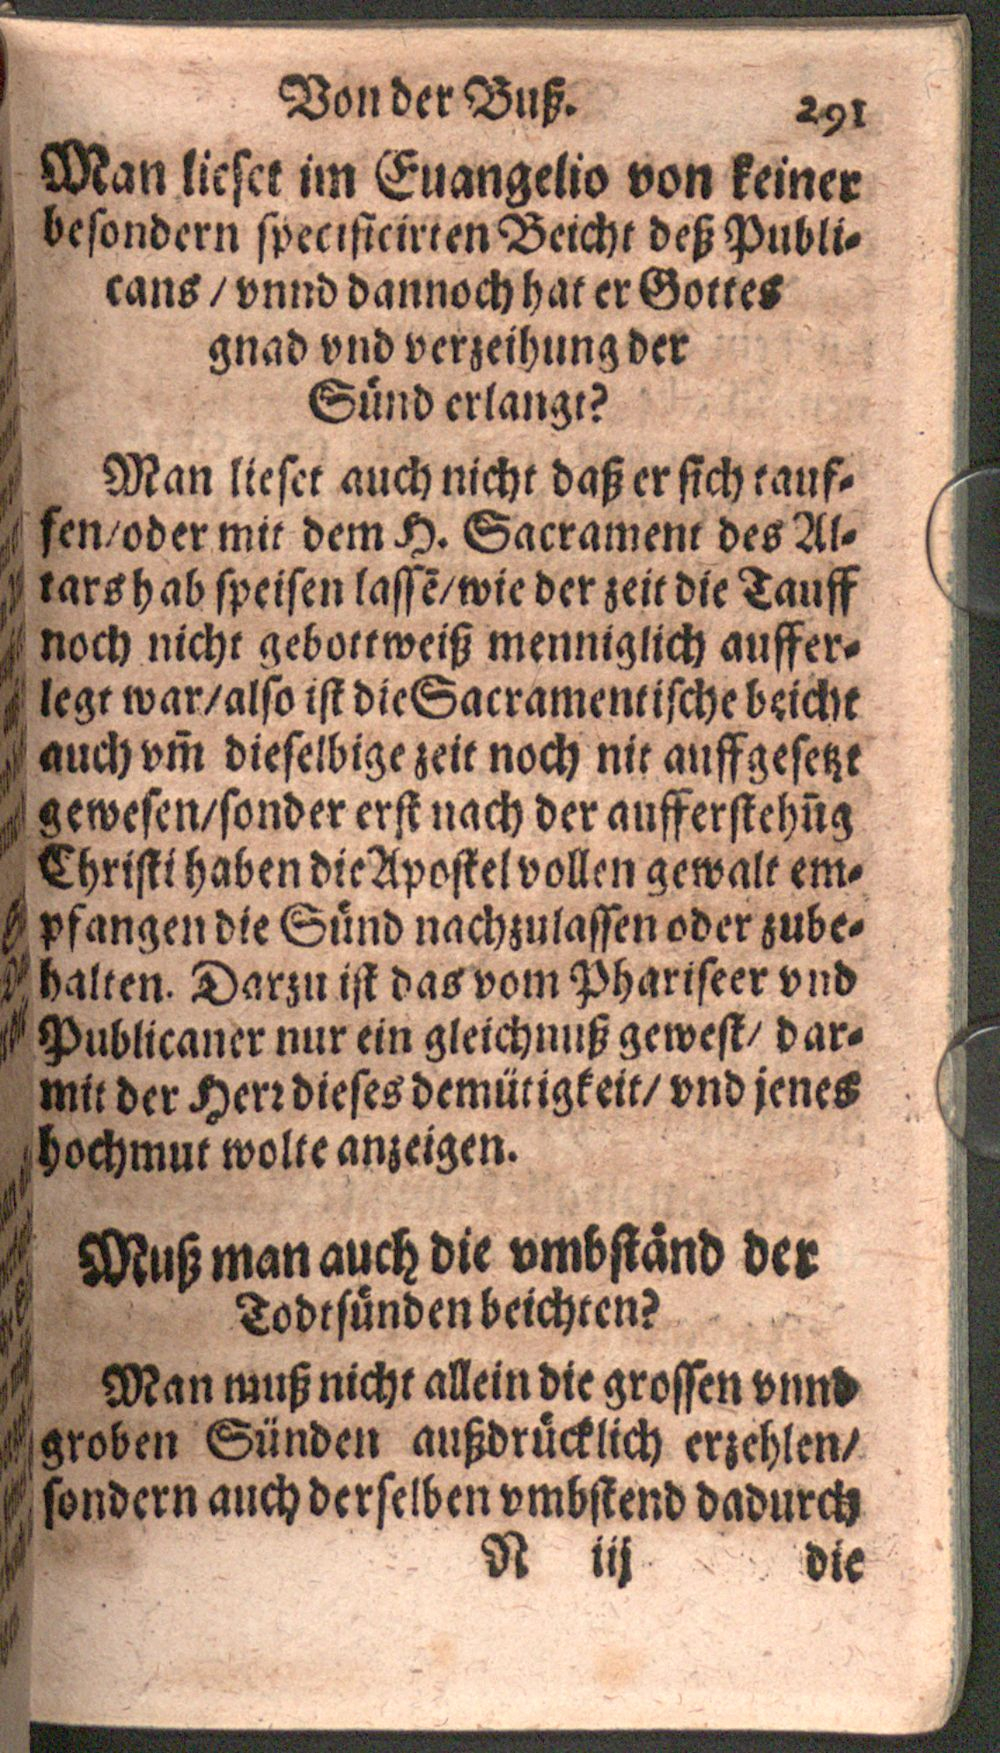 Von der Buß. 291
Man lieset im Euangelio von keiner
besondern specificirten Beicht deß Publi-
cans / vnnd dannoch hat er Gottes
gnad vnd verzeihung der
Sünd erlangt?
Man lieset auch nicht daß er sich tauf-
fen/oder mit dem H. Sacrament des Al-
tars hab speisen lassē/wie der zeit die Tauff
noch nicht gebottweiß menniglich auffer-
legt war/also ist die Sacramentische beicht
auch vm̄ dieselbige zeit noch nit auffgesetzt
gewesen/sonder erst nach der aufferstehūg
Christi haben die Apostel vollen gewalt em-
pfangen die Sünd nachzulassen oder zube-
halten. Darzu ist das vom Phariseer vnd
Publicaner nur ein gleichnuß gewest/ dar-
mit der Herr dieses demütigkeit/ vnd jenes
hochmut wolte anzeigen.
Muß man auch die vmbständ der
Todtsünden beichten?
Man muß nicht allein die grossen vnnd
groben Sünden außdrücklich erzehlen/
sondern auch derselben vmbstend dadurch
N iij die